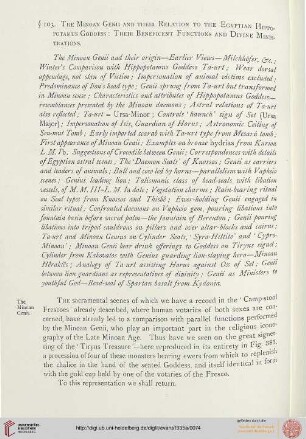 § 103. The Minoan Genii and their Relation to the Egyptian Hippo-
potamus Goddess: Their Beneficent Functions and Divine Minis-
trations.
The Minoan Genii and their origin—Earlier Views— Milchhöfer, &c.;
Winter's Comparison with Hippopotamus Goddess Ta-urt; Wear dorsal
appendage, not skin of Victim; Impersonation of animal victims excluded;
Predominance of lion's head type; Genii sprung from Ta-urt but transformed
in Minoan sense; Characteristics and attributes of Hippopotamus Goddess—
resemblances presented by the Minoan daemons; Astral relations of Ta-urt
also reflected; Ta-urt = Ursa Minor; Controls 'haunch' sign of Set (Ursa
Major); Impersonation of Isis, Guardian of Horus; Astronomic Ceiling of
Senmut Tomb; Early imported scarab with Ta-urt type from Mesarà tomb;
First appearance of Minoan Genii; Examples on bronze hydrias from Kurion
L. M. I; Suggestions of Crocodile between Genii; Correspondence with details
of Egyptian astral scenes; The 'Daemon Seals' of Knossos; Genii as carriers
and leaders of animals; Bull and cow led by horns—parallelism with Vapheio
scene; Genius leading lion; Talismanic class of bead-seals with libation
vessels, of M. M. III–L. M. I a date; Vegetation charms; Rain-bearing ritual
on Seal types from Knossos and Thisbê; Ewer-holding Genii engaged in
similar ritual; Confronted daemons on Vapheio gem, pouring libations into
fountain basin before sacral palm—the fountain of Berenton; Genii pouring
libations into tripod cauldrons on pillars and over altar-blocks and cairns;
Ta-urt and Minoan Genius on Cylinder Seals, 'Syro-Hittite' and 'Cypro-
Minoan'; Minoan Genii bear drink offerings to Goddess on Tiryns signet;
Cylinder from Kakovatos with Genius guarding lion-slaying hero—Minoan
Hêraklês; Analogy of Ta-urt assisting Horus against Ox of Set; Genii
between lion guardians as representatives of divinity; Genii as Ministers to
youthful God—Bead-seal of Spartan basalt from Kydonia.
The
Minoan
Genii.
The sacramental scenes of which we have a record in the 'Campstool
Frescoes' already described, where human votaries of both sexes are con-
cerned, have already led to a comparison with parallel functions performed
by the Minoan Genii, who play an important part in the religious icono-
graphy of the Late Minoan Age. Thus have we seen on the great signet-
ring of the 'Tiryns Treasure'—here reproduced in its entirety in Fig. 388,
a procession of four of these monsters bearing ewers from which to replenish
the chalice in the hand of the seated Goddess, and itself identical in form
with the gold cup held by one of the votaries of the Fresco.
To this representation we shall return.
http://digi.ub.uni-heidelberg.de/diglit/evans1935a/0074